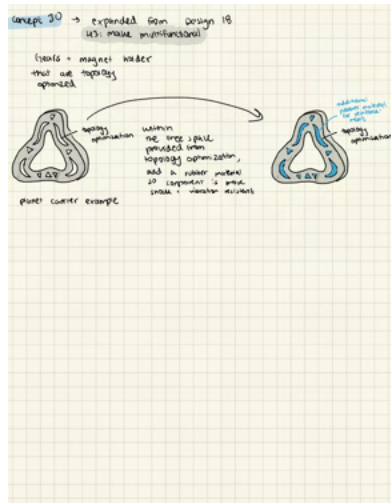 concept 30 → expanded from Design 18
43: make multifunctional
Gears + magnet holder
that are topology
optimized
topology
optimization
within
the free space
provided from
topology optimization,
add a rubber material
so component is more
shock + vibration resistant
additional
rubber material
for
topology
optimization
planet carrier example